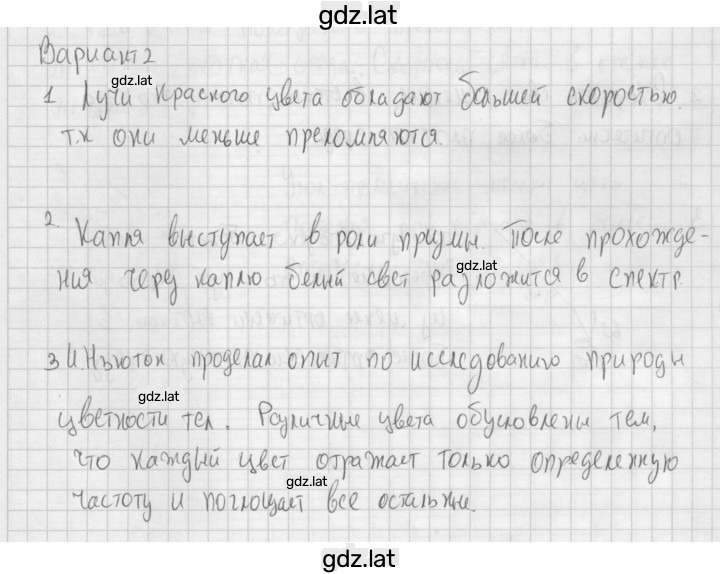 gdz.lat
Вариант 2
gdz.lat
1 Лучи красного цвета обладают большей скоростью.
т.к они меньше преломляются.
gdz.lat
2.
Капля выступает в роли призмы. После прохожде-
gdz.lat
ния через каплю белый свет разложится в спектр.
3 И.Ньютон проделал опыт по исследованию природы
gdz.lat
цветности тел. Различные цвета обусловлены тем,
что каждый цвет отражает только определенную
gdz.lat
частоту и поглощает все остальные.
gdz.lat